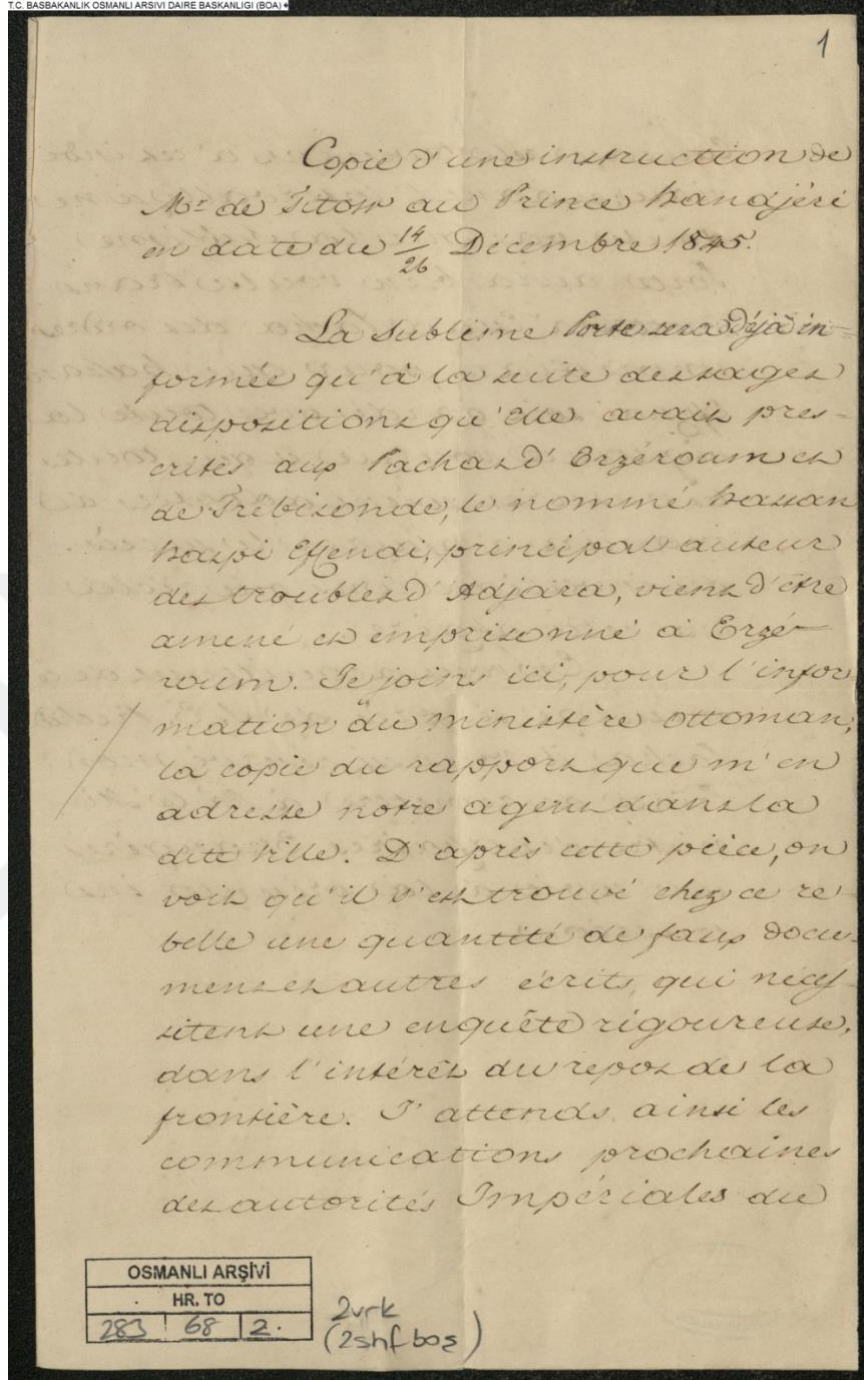 T.C. BASBAKANLIK OSMANLI ARSIVI DAIRE BASKANLIGI (BOA)
1
Copie d'une instruction de
Mr de Titow au Prince Handjéri
en date du 14/26 Décembre 1845.
La Sublime Porte sera déjà in-
formée qu'à la suite des sages
dispositions qu'Elle avait pres-
crites aux Pachas d'Erzéroum et
de Trébisonde, le nommé Hassan
Effendi, principal auteur
des troubles d'Adjara, vient d'être
amené et emprisonné à Erzé-
roum. Je joins ici, pour l'infor
mation du ministère ottoman,
la copie du rapport que m'en
adresse notre agent dans la
dite ville. D'après cette pièce, on
voit qu'il s'est trouvé chez ce re-
belle une quantité de faux docu-
mens et autres écrits, qui néces-
sitent une enquête rigoureuse,
dans l'intérêt du repos de la
frontière. J'attends ainsi les
communications prochaines
des autorités Impériales du
OSMANLI ARŞİVİ
HR. TO
283 68 2.
2vrk
(2shf boş)